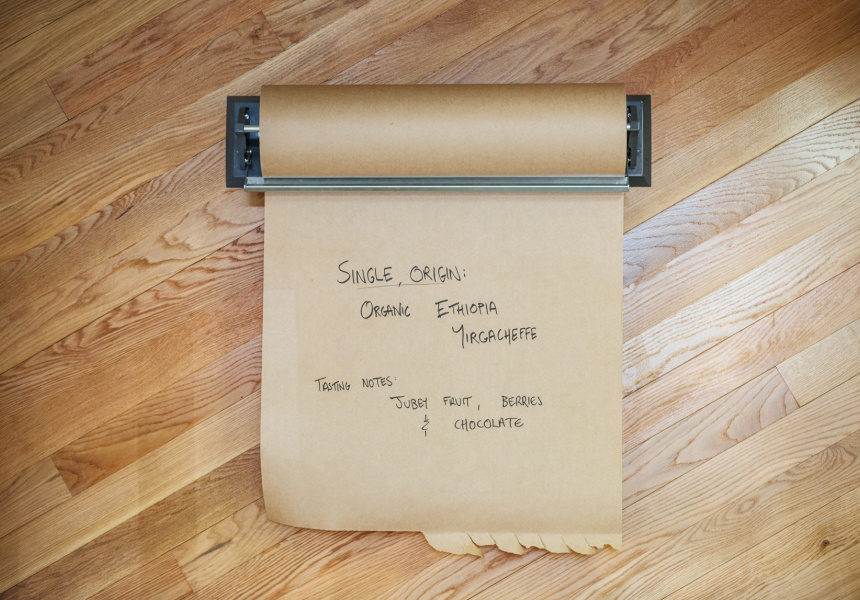 SINGLE, ORIGIN:
ORGANIC ETHIOPIA
YIRGACHEFFE
TASTING NOTES:
JUBEY FRUIT, BERRIES
& CHOCOLATE